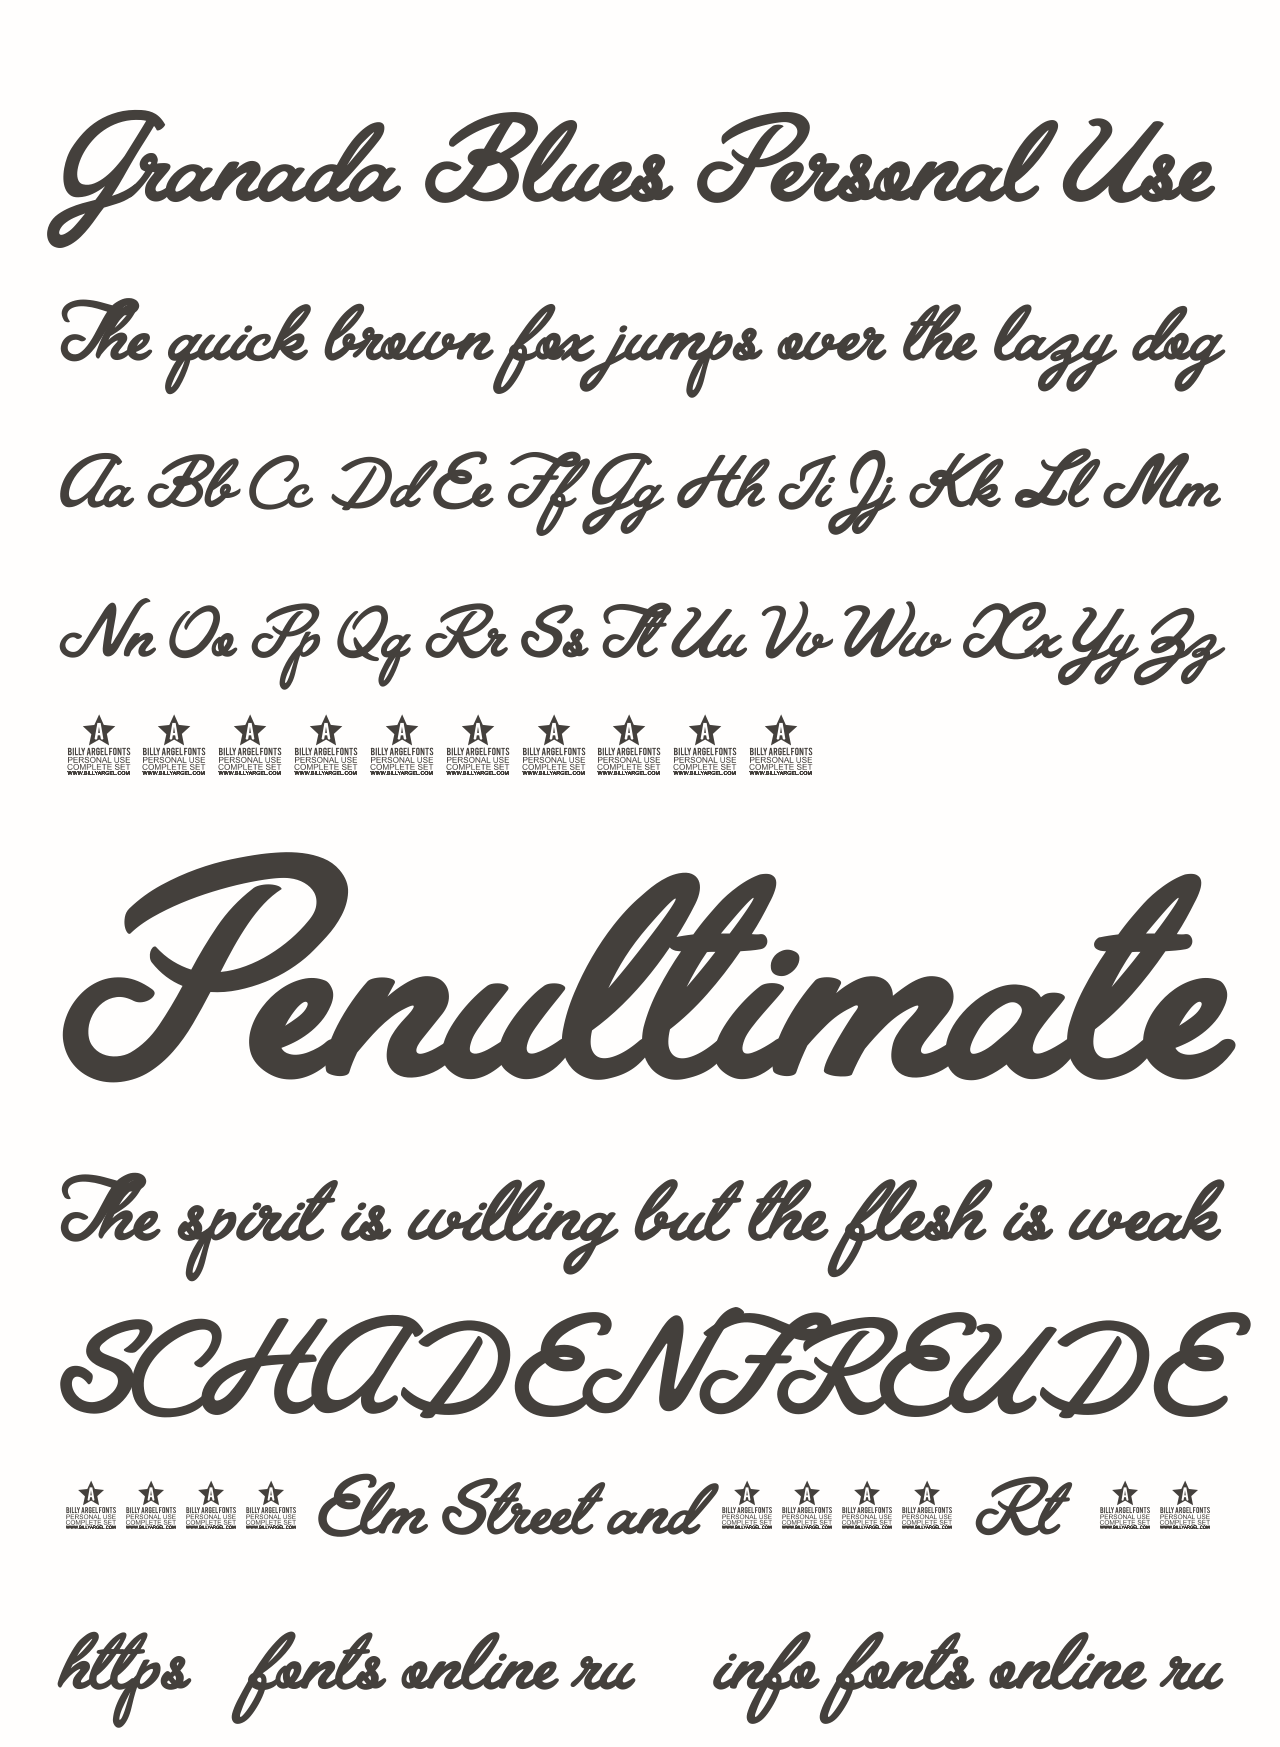 Granada Blues Personal Use
The quick brown fox jumps over the lazy dog
Aa Bb Cc Dd Ee Ff Gg Hh Ii Jj Kk Ll Mm
Nn Oo Pp Qq Rr Ss Tt Uu Vv Ww Xx Yy Zz
BILLY ARGEL FONTS BILLY ARGEL FONTS BILLY ARGEL FONTS BILLY ARGEL FONTS BILLY ARGEL FONTS BILLY ARGEL FONTS BILLY ARGEL FONTS BILLY ARGEL FONTS BILLY ARGEL FONTS BILLY ARGEL FONTS
PERSONAL USE PERSONAL USE PERSONAL USE PERSONAL USE PERSONAL USE PERSONAL USE PERSONAL USE PERSONAL USE PERSONAL USE PERSONAL USE
COMPLETE SET COMPLETE SET COMPLETE SET COMPLETE SET COMPLETE SET COMPLETE SET COMPLETE SET COMPLETE SET COMPLETE SET COMPLETE SET
WWW.BILLYARGEL.COM WWW.BILLYARGEL.COM WWW.BILLYARGEL.COM WWW.BILLYARGEL.COM WWW.BILLYARGEL.COM WWW.BILLYARGEL.COM WWW.BILLYARGEL.COM WWW.BILLYARGEL.COM WWW.BILLYARGEL.COM WWW.BILLYARGEL.COM
Penultimate
The spirit is willing but the flesh is weak
SCHADENFREUDE
Elm Street and Rt
BILLY ARGEL FONTS BILLY ARGEL FONTS BILLY ARGEL FONTS BILLY ARGEL FONTS BILLY ARGEL FONTS BILLY ARGEL FONTS BILLY ARGEL FONTS BILLY ARGEL FONTS BILLY ARGEL FONTS BILLY ARGEL FONTS
PERSONAL USE PERSONAL USE PERSONAL USE PERSONAL USE PERSONAL USE PERSONAL USE PERSONAL USE PERSONAL USE PERSONAL USE PERSONAL USE
COMPLETE SET COMPLETE SET COMPLETE SET COMPLETE SET COMPLETE SET COMPLETE SET COMPLETE SET COMPLETE SET COMPLETE SET COMPLETE SET
WWW.BILLYARGEL.COM WWW.BILLYARGEL.COM WWW.BILLYARGEL.COM WWW.BILLYARGEL.COM WWW.BILLYARGEL.COM WWW.BILLYARGEL.COM WWW.BILLYARGEL.COM WWW.BILLYARGEL.COM WWW.BILLYARGEL.COM WWW.BILLYARGEL.COM
https fonts online ru info fonts online ru